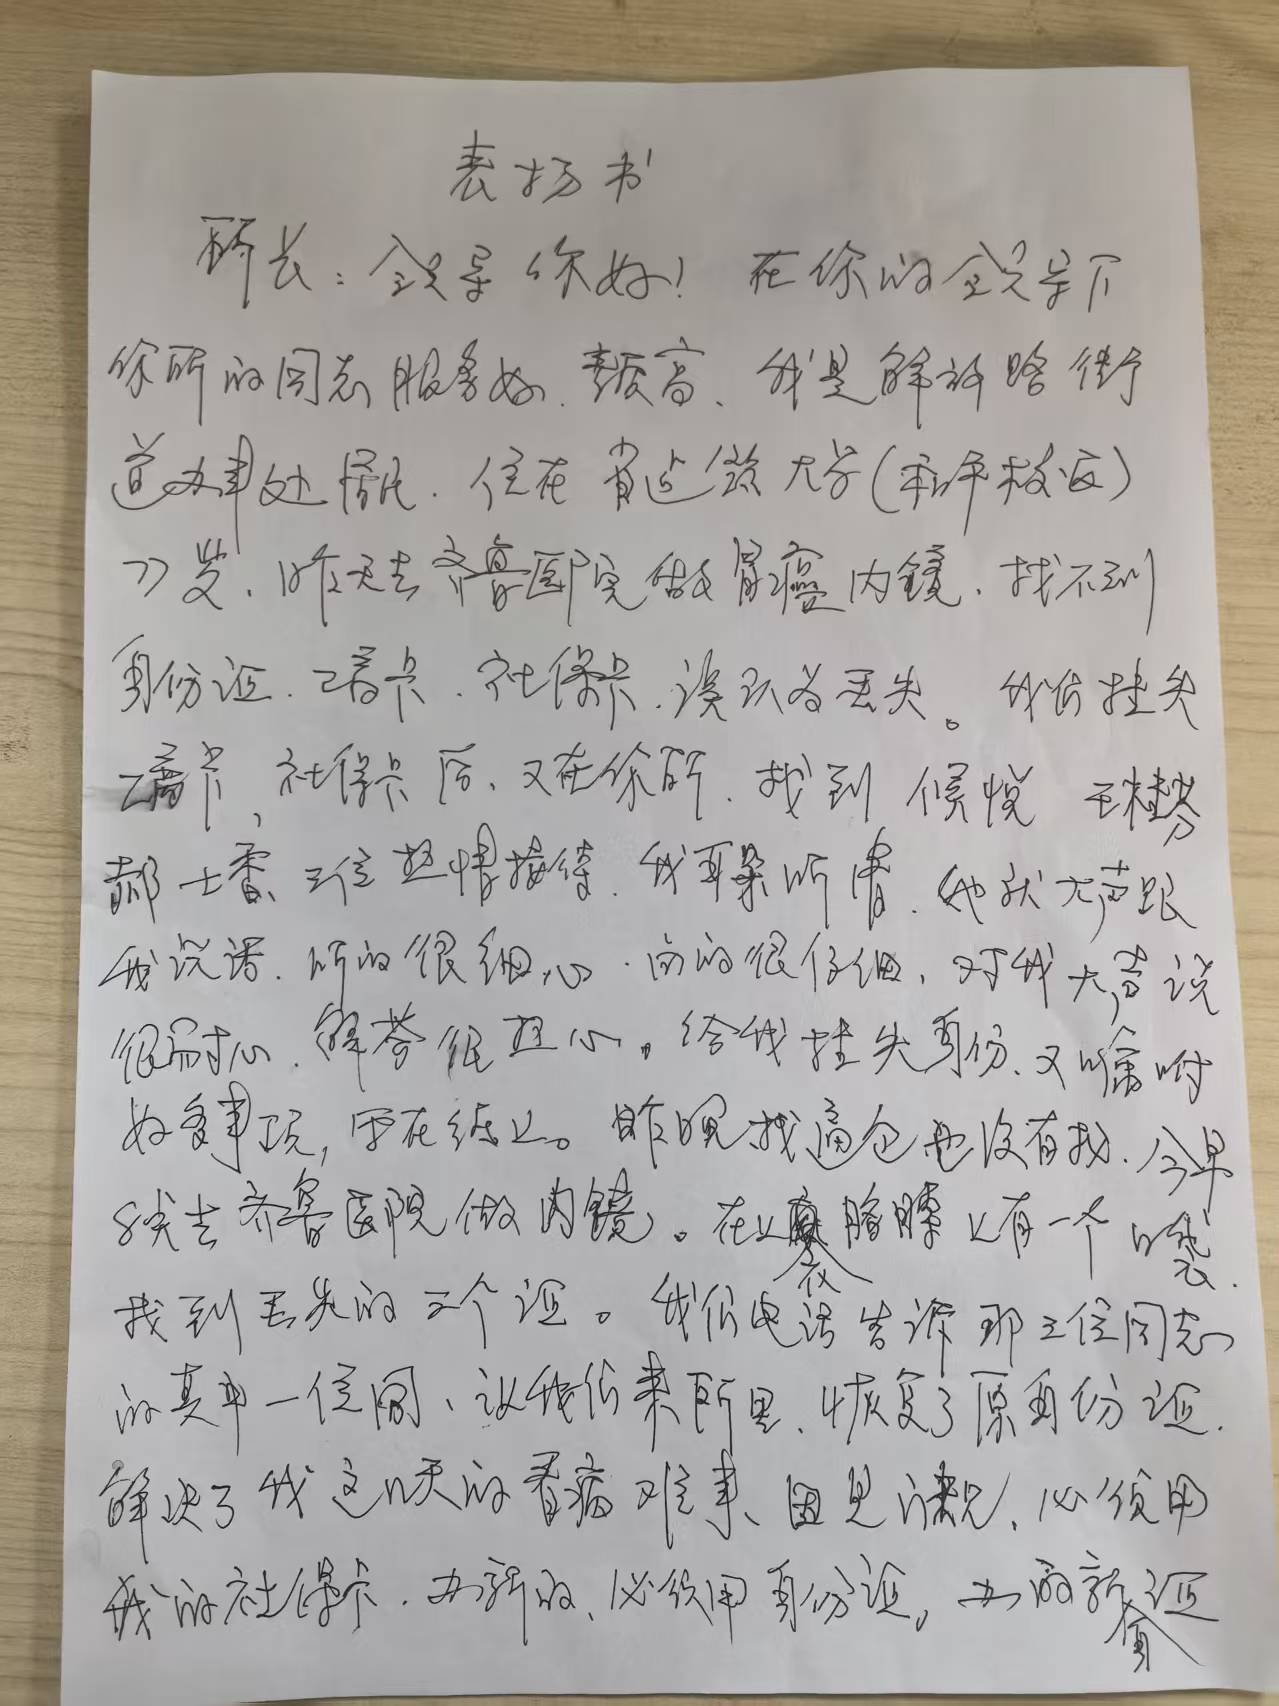 表扬书
所长：领导你好！在你的领导下
你所的同志服务好、素质高、我是解放路街
道办事处居民．住在肖迪敛大学(和平校区)
77岁、昨天去齐鲁医院做胃癌内镜、找不到
身份证．工商卡．社保卡．误认为丢失。我们挂失
工商卡、社保卡后、又在你所．找到 侯悦 王桂芬
郝士香、三位热情接待．我耳朵听背．她就大声跟
我说话．听的很细心．问的很仔细、对我大声说
很耐心．解答很热心。给我挂失身份、又嘱咐
好多事项，写在纸上。昨晚找遍包也没有找．今早
我去齐鲁医院做内镜。在上衣胳膊上有一个口袋．
找到丢失的三个证。我们电话告诉那三位同志
的其中一位同、让我们来所里、恢复了原身份证．
解决了我这几天的看病难事、因思情况、必须用
我的社保卡．办新的、必须用身份证，办的新身证